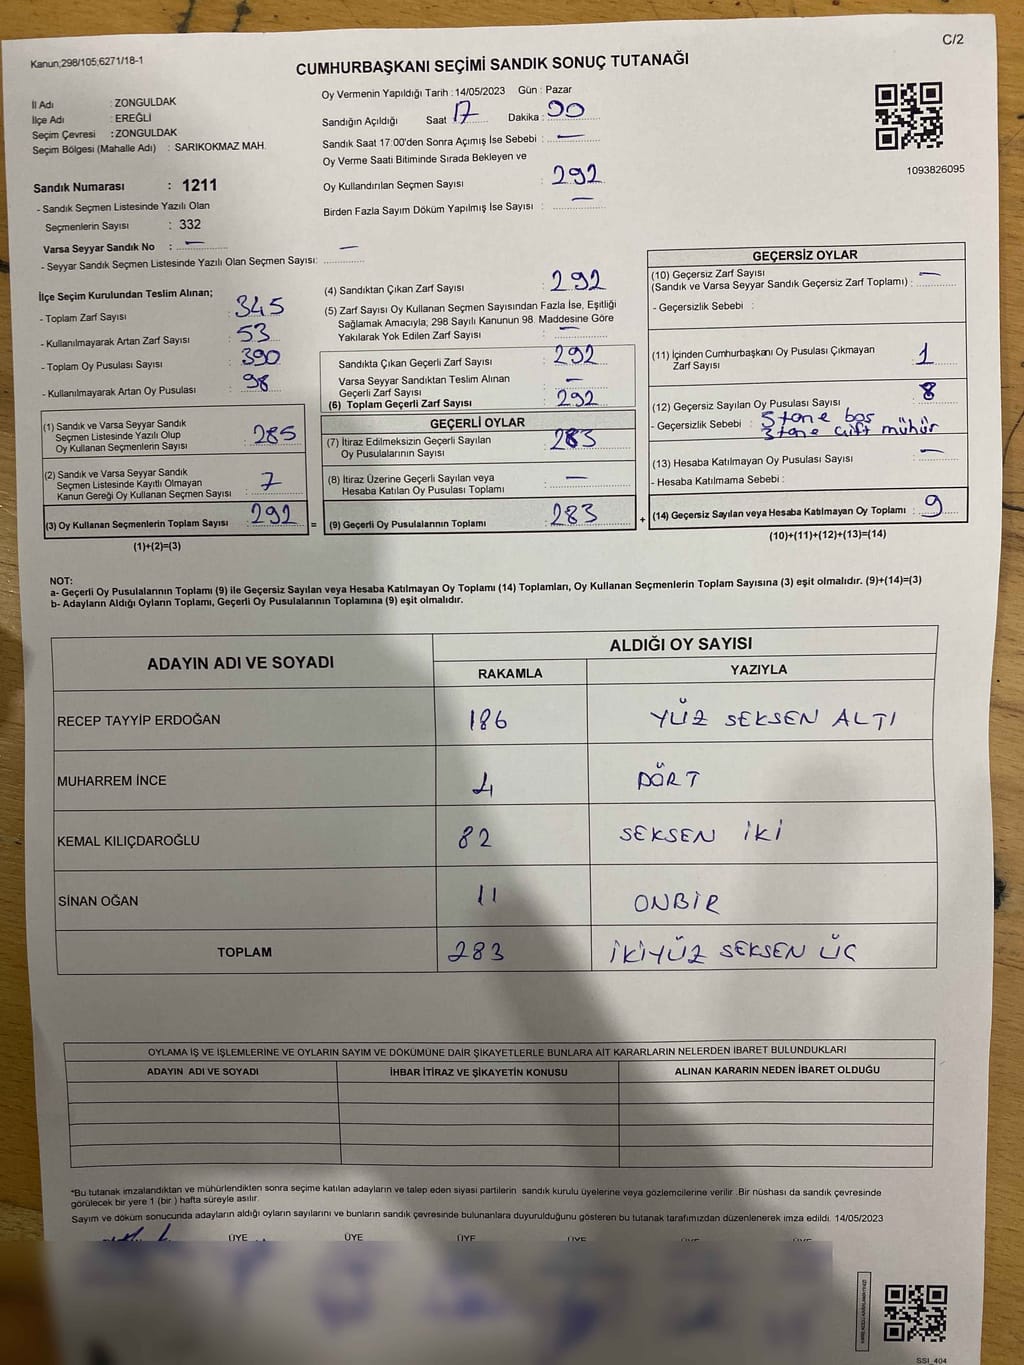 C/2
Kanun;298/105;6271/18-1
CUMHURBAŞKANI SEÇİMİ SANDIK SONUÇ TUTANAĞI
İl Adı : ZONGULDAK
İlçe Adı : EREĞLİ
Seçim Çevresi : ZONGULDAK
Seçim Bölgesi (Mahalle Adı) : SARIKOKMAZ MAH.
Sandık Numarası : 1211
- Sandık Seçmen Listesinde Yazılı Olan
Seçmenlerin Sayısı : 332
Varsa Seyyar Sandık No : —
- Seyyar Sandık Seçmen Listesinde Yazılı Olan Seçmen Sayısı: —
Oy Vermenin Yapıldığı Tarih : 14/05/2023 Gün : Pazar
Sandığın Açıldığı Saat 17 Dakika : 00
Sandık Saat 17:00'den Sonra Açımış İse Sebebi : —
Oy Verme Saati Bitiminde Sırada Bekleyen ve
Oy Kullandırılan Seçmen Sayısı : 292
Birden Fazla Sayım Döküm Yapılmış İse Sayısı : —
1093826095
İlçe Seçim Kurulundan Teslim Alınan;
- Toplam Zarf Sayısı : 345
- Kullanılmayarak Artan Zarf Sayısı : 53
- Toplam Oy Pusulası Sayısı : 390
- Kullanılmayarak Artan Oy Pusulası : 98
(1) Sandık ve Varsa Seyyar Sandık
Seçmen Listesinde Yazılı Olup
Oy Kullanan Seçmenlerin Sayısı : 285
(2) Sandık ve Varsa Seyyar Sandık
Seçmen Listesinde Kayıtlı Olmayan
Kanun Gereği Oy Kullanan Seçmen Sayısı : 7
(3) Oy Kullanan Seçmenlerin Toplam Sayısı : 292
(1)+(2)=(3)
(4) Sandıktan Çıkan Zarf Sayısı : 292
(5) Zarf Sayısı Oy Kullanan Seçmen Sayısından Fazla İse, Eşitliği
Sağlamak Amacıyla, 298 Sayılı Kanunun 98. Maddesine Göre
Yakılarak Yok Edilen Zarf Sayısı : —
Sandıkta Çıkan Geçerli Zarf Sayısı : 292
Varsa Seyyar Sandıktan Teslim Alınan
Geçerli Zarf Sayısı : —
(6) Toplam Geçerli Zarf Sayısı : 292
GEÇERLİ OYLAR
(7) İtiraz Edilmeksizin Geçerli Sayılan
Oy Pusulalarının Sayısı : 283
(8) İtiraz Üzerine Geçerli Sayılan veya
Hesaba Katılan Oy Pusulası Toplamı : —
= (9) Geçerli Oy Pusulalarının Toplamı : 283
GEÇERSİZ OYLAR
(10) Geçersiz Zarf Sayısı
(Sandık ve Varsa Seyyar Sandık Geçersiz Zarf Toplamı) : —
- Geçersizlik Sebebi :
(11) İçinden Cumhurbaşkanı Oy Pusulası Çıkmayan
Zarf Sayısı : 1
(12) Geçersiz Sayılan Oy Pusulası Sayısı : 8
- Geçersizlik Sebebi : 5 tane boş
3 tane çift mühür
(13) Hesaba Katılmayan Oy Pusulası Sayısı : —
- Hesaba Katılmama Sebebi :
+ (14) Geçersiz Sayılan veya Hesaba Katılmayan Oy Toplamı : 9
(10)+(11)+(12)+(13)=(14)
NOT:
a- Geçerli Oy Pusulalarının Toplamı (9) ile Geçersiz Sayılan veya Hesaba Katılmayan Oy Toplamı (14) Toplamları, Oy Kullanan Seçmenlerin Toplam Sayısına (3) eşit olmalıdır. (9)+(14)=(3)
b- Adayların Aldığı Oyların Toplamı, Geçerli Oy Pusulalarının Toplamına (9) eşit olmalıdır.
ADAYIN ADI VE SOYADI ALDIĞI OY SAYISI
RAKAMLA YAZIYLA
RECEP TAYYİP ERDOĞAN 186 YÜZ SEKSEN ALTI
MUHARREM İNCE 4 DÖRT
KEMAL KILIÇDAROĞLU 82 SEKSEN İKİ
SİNAN OĞAN 11 ONBİR
TOPLAM 283 İKİYÜZ SEKSEN ÜÇ
OYLAMA İŞ VE İŞLEMLERİNE VE OYLARIN SAYIM VE DÖKÜMÜNE DAİR ŞİKAYETLERLE BUNLARA AİT KARARLARIN NELERDEN İBARET BULUNDUKLARI
ADAYIN ADI VE SOYADI İHBAR İTİRAZ VE ŞİKAYETİN KONUSU ALINAN KARARIN NEDEN İBARET OLDUĞU
*Bu tutanak imzalandıktan ve mühürlendikten sonra seçime katılan adayların ve talep eden siyasi partilerin sandık kurulu üyelerine veya gözlemcilerine verilir .Bir nüshası da sandık çevresinde
görülecek bir yere 1 (bir ) hafta süreyle asılır.
Sayım ve döküm sonucunda adayların aldığı oyların sayılarını ve bunların sandık çevresinde bulunanlara duyurulduğunu gösteren bu tutanak tarafımızdan düzenlenerek imza edildi. 14/05/2023
ÜYE ÜYE ÜYE ÜYE
SSI_404